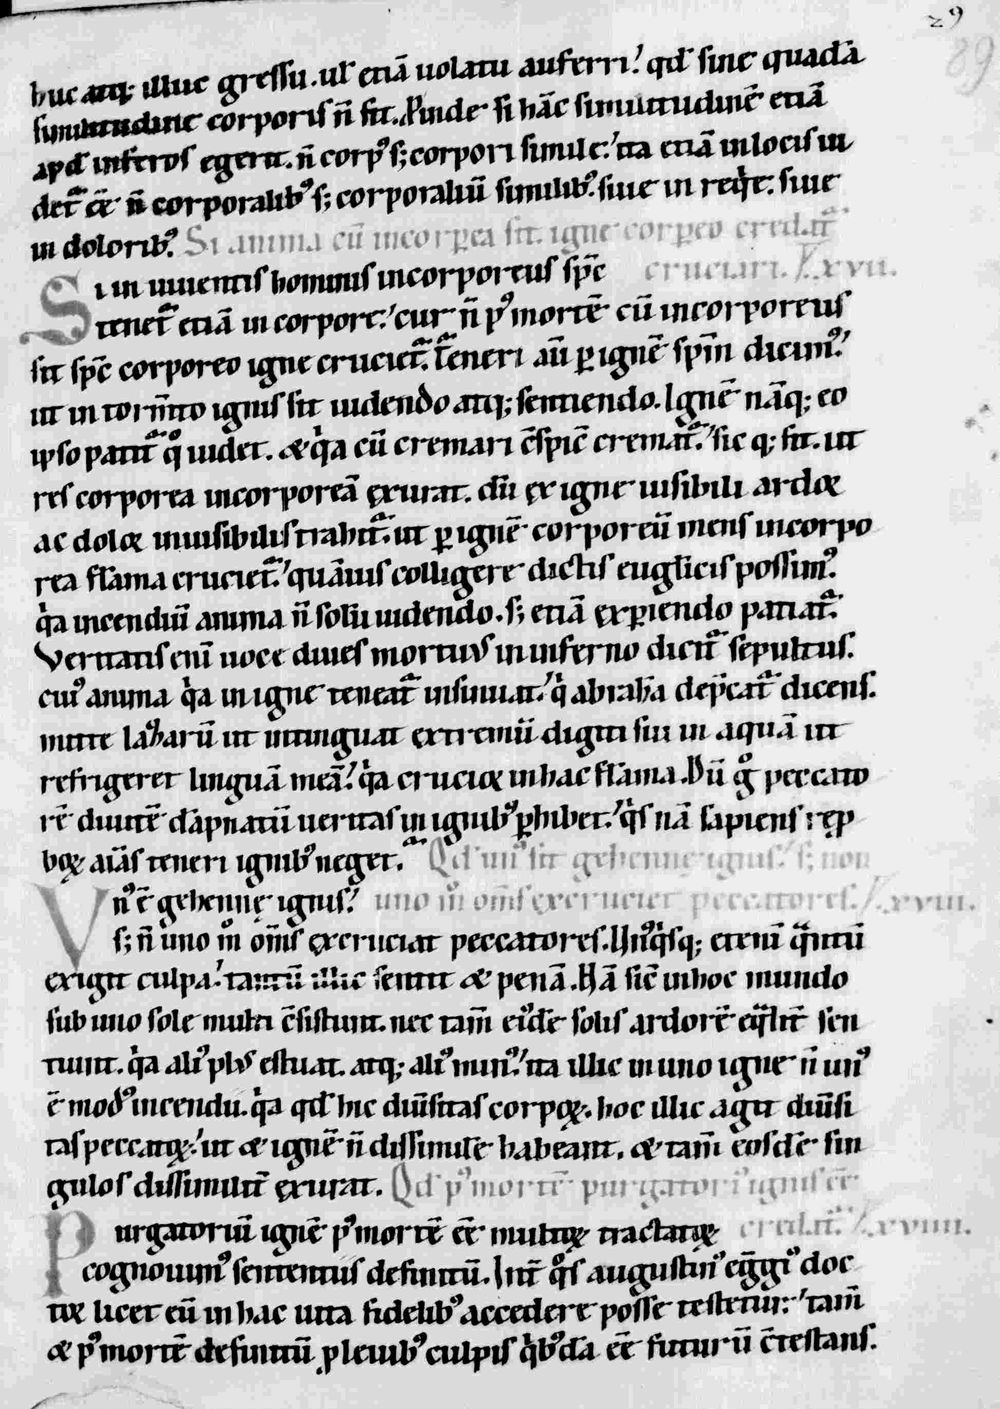 29
89
huc atq; illuc gressu. ul̄ etiā uolatu auferri! qd̄ sine quadā
similitudine corporis n̄ fit. Proinde si hāc similitudinē etiā
apd̄ inferos egerit. n̄ corpꝰ s; corpori simile:' ita etiā in locis ui
det᷑ ēē n̄ corporalibꝰ s; corporaliū similibꝰ. siue in reqͥe: siue
in doloribꝰ. Si anima cū incorꝑea sit. igne corꝑeo credat᷑
Si in uiuentis hominis incorporeus spc̄ cruciari. xvii.
tenet᷑ etiā in corpore:' cur n̄ pꝰ mortē cū incorporeus
sit spc̄ corporeo igne cruciet᷑. Teneri aū ꝑ ignē spm̄ dicimꝰ!
ut in torm̄to ignis sit uidendo atq; sentiendo. Ignē nāq; eo
ipso patit᷑ qͦ uidet. & qͥa cū cremari c̄spic̄ cremat᷑:' sic q; fit. ut
res corporea incorporeā ęxurat. dū ęx igne uisibili ardoꝛ
ac doloꝛ inuisibilis trahit᷑. ut ꝑ ignē corporeū mens incorpo
rea flāma cruciet᷑:' quāuis colligere dictis euglicis possimꝰ.
qͥa incendiū anima n̄ solū uidendo. s; etiā ęxꝑiendo patiat᷑.
Veritatis enī uoce diues mortuus in inferno dicit᷑ sepultus.
cuiꝰ anima qͥa in igne teneat᷑ insinuat:' qͥ abrahā dep̄cat᷑ dicens.
mitte lazharū ut intinguat ęxtremū digiti sui in aquā ut
refrigeret linguā meā! qͥa crucioꝛ in hac flāma. Dū gͦ peccato
rē diuitē dāpnatū ueritas in ignibꝰ ꝑhibet:' qͥs nā sapiens rep
boꝝ aīas teneri ignibꝰ neget. Qd̄ unꝰ sit gehennę ignis! s; non
Vnꝰ ē gehennę ignis! uno m̊ om̄s ęxcruciet peccatores. xviii.
s; n̄ uno m̊ om̄s ęxcruciat peccatores. Unꝰqͥsq; etenī qᷓntū
exigit culpa! tantū illic sentit & penā. Nā sic̄ in hoc mundo
sub uno sole multi c̄sistunt. nec tam̄ eiꝰdē solis ardorē eqᷓlit̄ sen
tiunt. qͥa aliꝰ plus estuat. atq; aliꝰ minꝰ:' ita illic in uno igne n̄ unꝰ
ē modꝰ incendii. qͥa qd̄ hic diūsitas corpoꝝ. hoc illic agit diūsi
tas peccatoꝝ:' ut & ignē n̄ dissimile habeant. & tam̄ eosdē sin
gulos dissimilit̄ ęxurat. Qd̄ pꝰ mortē purgatoriꝰ ignis ēē
Purgatoriū ignē pꝰ mortē ēē multoꝝ tractatoꝝ credat᷑. xviiii.
cognouimꝰ sententiis definitū. Int̄ qͦs augustinꝰ egͣgiꝰ doc
toꝛ licet eū in hac uita fidelibꝰ accedere posse testetur:' tam̄
& pꝰ mortē definitū ꝓ leuibꝰ culpis qͥbꝰdā ēē futurū c̄testans.